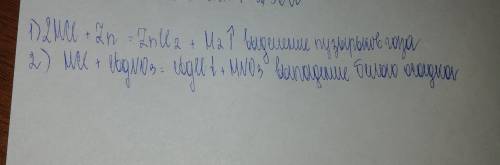 1) 2HCl + Zn = ZnCl2 + H2↑ выделение пузырьков газа
2) HCl + AgNO3 = AgCl↓ + HNO3 выпадение белого осадка